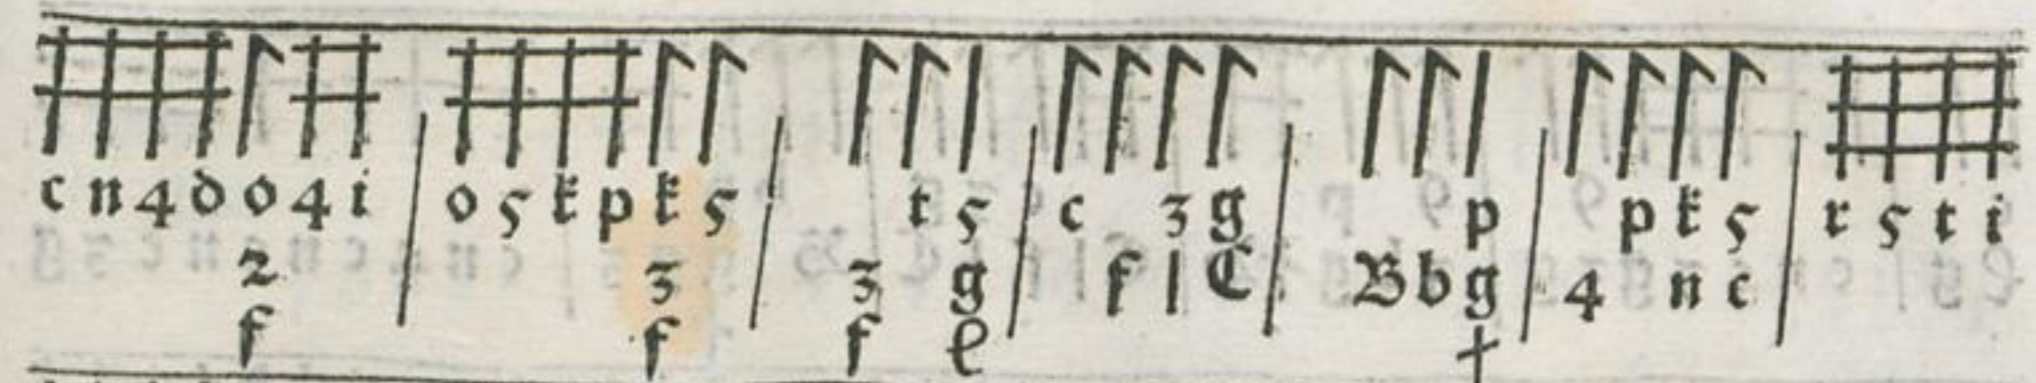 c n 4 d o 4 i | o 5 k p k 5 | t 5 | c 3 g | p | p k 5 | r 5 t i
2 3 3 g f l C B b g 4 n c
f f f e †